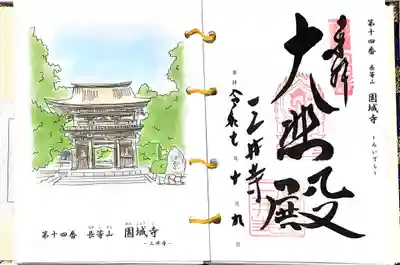 第十四番 長等山 園城寺
−三井寺−
第十四番 長等山 園城寺
~みいでら~
奉拝
大悲殿
三井寺
令和七年十月九日